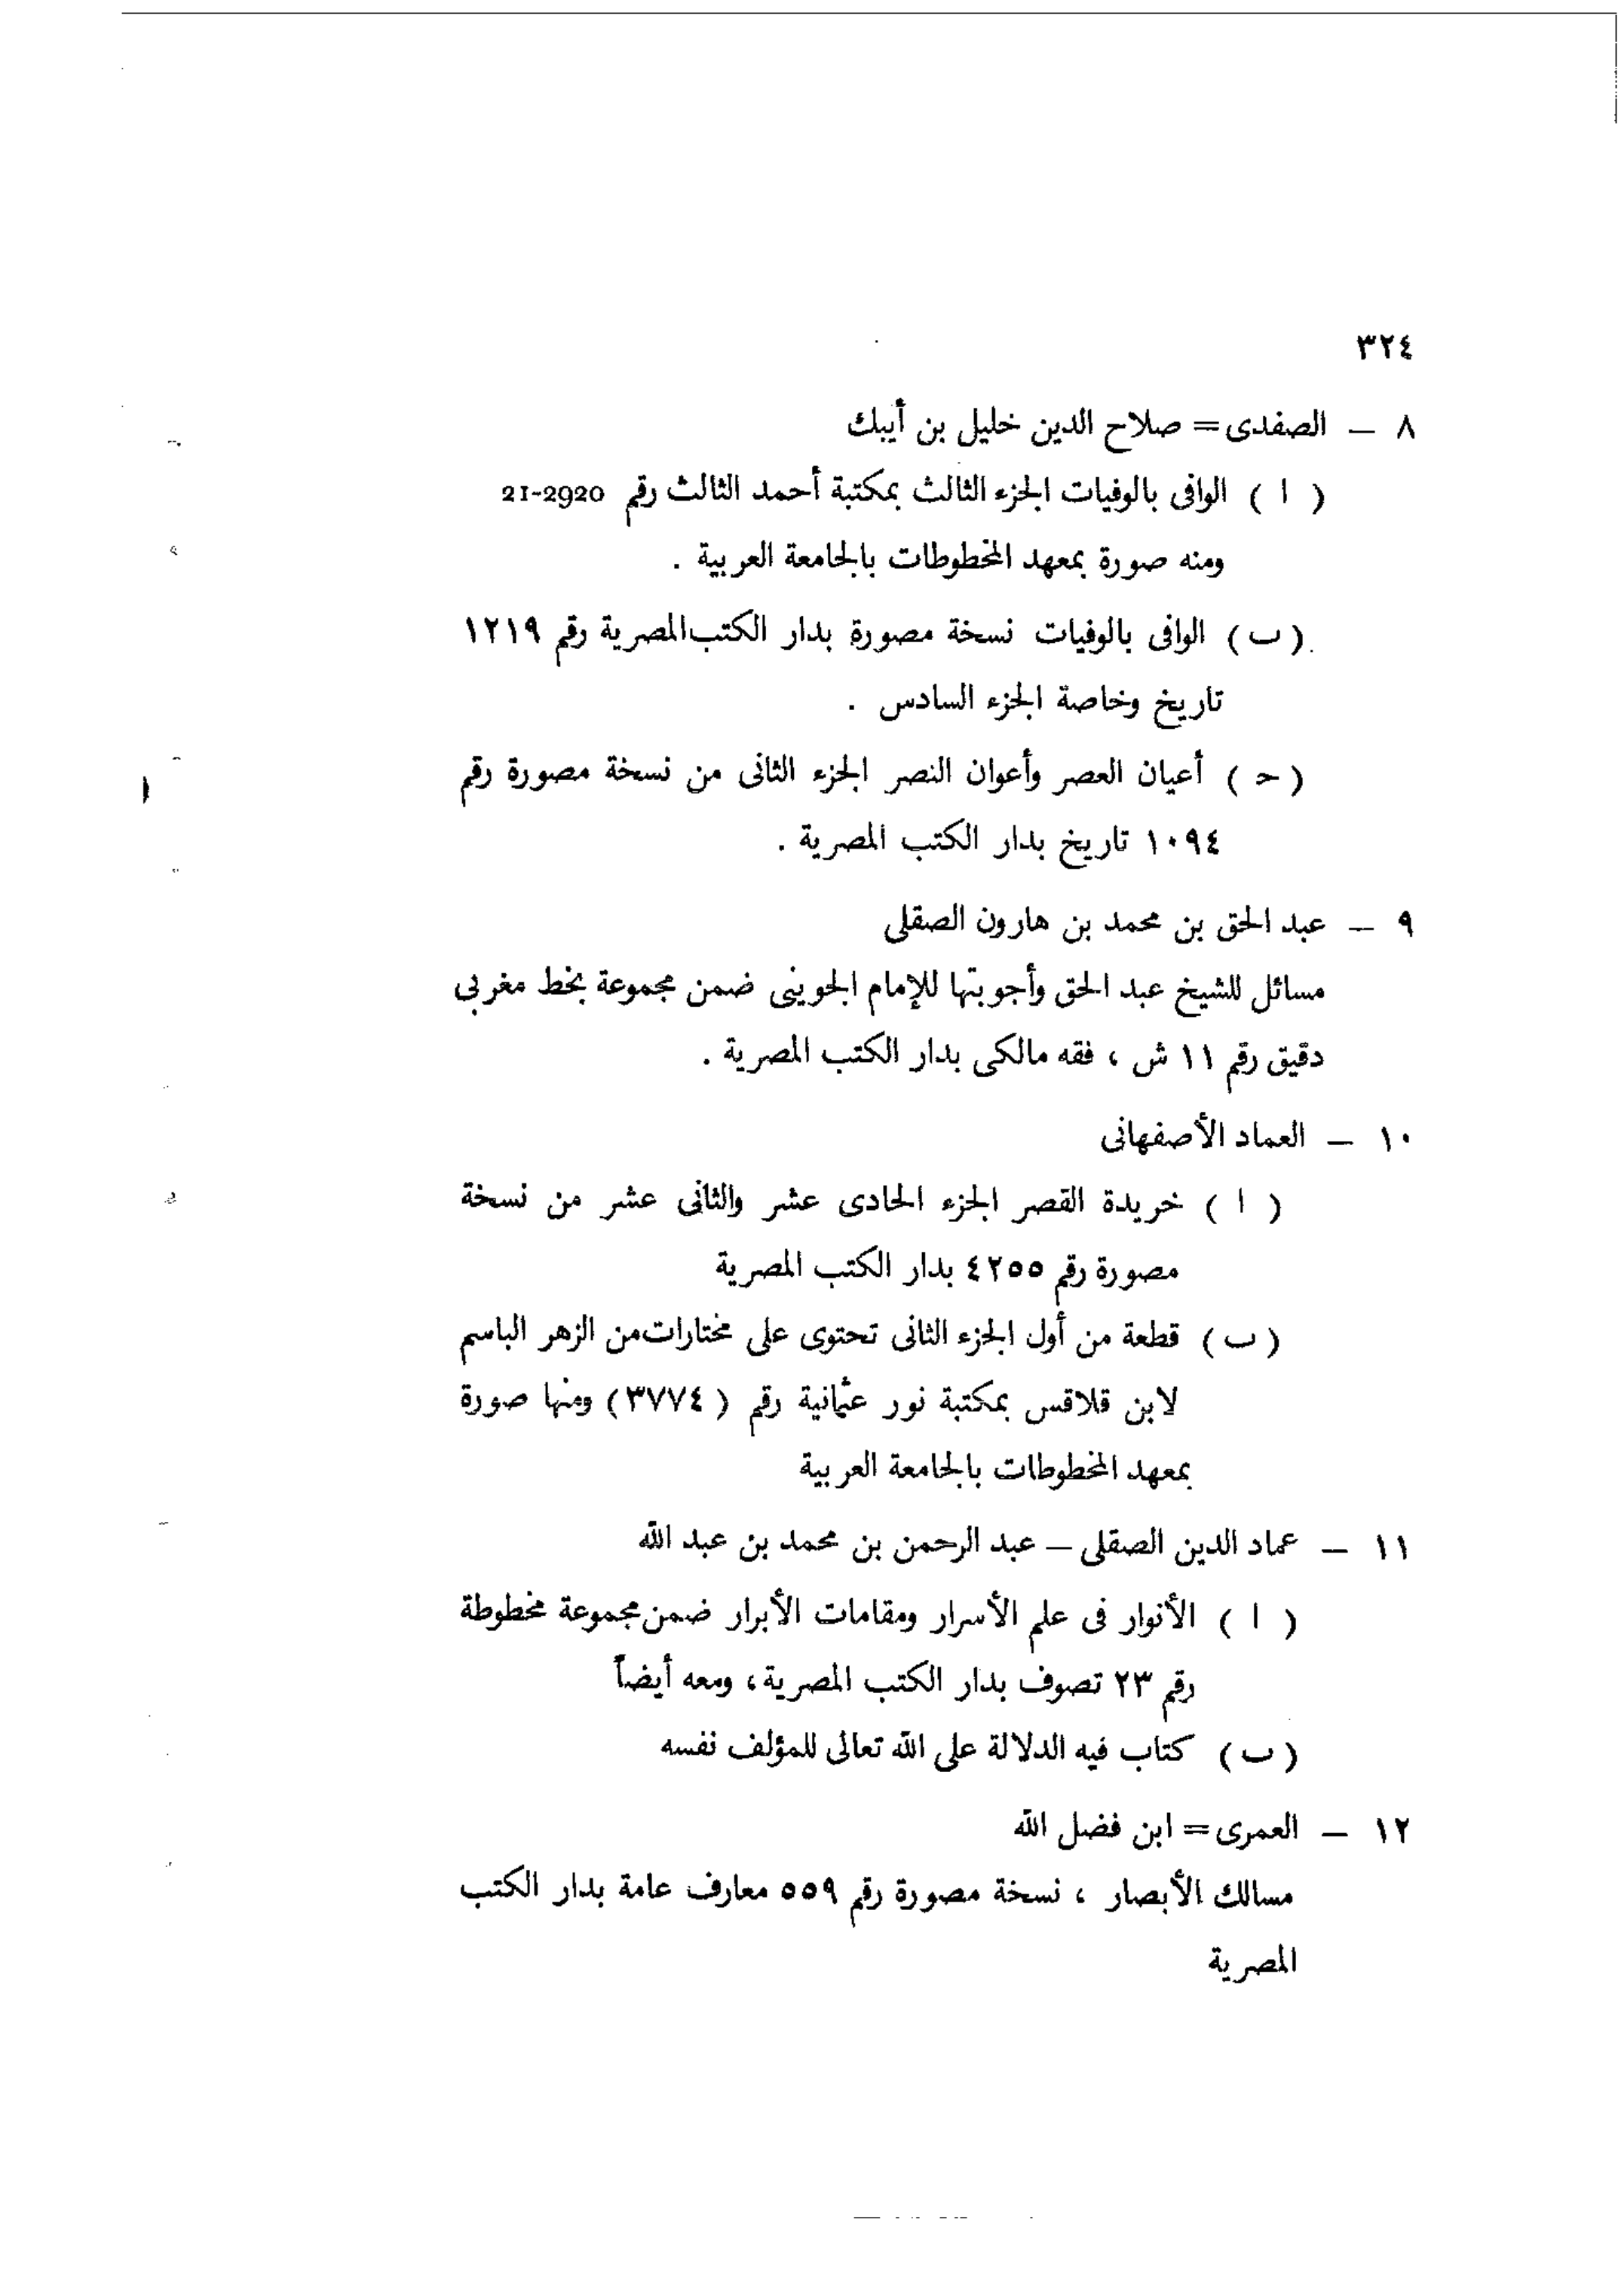 ٣٢٤
٨ — الصفدى = صلاح الدين خليل بن أيبك
( ا ) الوافى بالوفيات الجزء الثالث بمكتبة أحمد الثالث رقم 2920-21
ومنه صورة بمعهد المخطوطات بالجامعة العربية .
(ب) الوافى بالوفيات نسخة مصورة بدار الكتب المصرية رقم ١٢١٩
تاريخ وخاصة الجزء السادس .
(ح) أعيان العصر وأعوان النصر الجزء الثانى من نسخة مصورة رقم
١٠٩٤ تاريخ بدار الكتب المصرية .
٩ — عبد الحق بن محمد بن هارون الصقلى
مسائل للشيخ عبد الحق وأجوبتها للإمام الجوينى ضمن مجموعة بخط مغربى
دقيق رقم ١١ ش ، فقه مالكى بدار الكتب المصرية .
١٠ — العماد الأصفهانى
( ا ) خريدة القصر الجزء الحادى عشر والثانى عشر من نسخة
مصورة رقم ٤٢٥٥ بدار الكتب المصرية
(ب) قطعة من أول الجزء الثانى تحتوى على مختارات من الزهر الباسم
لابن قلاقس بمكتبة نور عثمانية رقم (٣٧٧٤) ومنها صورة
بمعهد المخطوطات بالجامعة العربية
١١ — عماد الدين الصقلى — عبد الرحمن بن محمد بن عبد الله
( ا ) الأنوار فى علم الأسرار ومقامات الأبرار ضمن مجموعة مخطوطة
رقم ٢٣ تصوف بدار الكتب المصرية ، ومعه أيضاً
(ب) كتاب فيه الدلالة على الله تعالى للمؤلف نفسه
١٢ — العمرى = ابن فضل الله
مسالك الأبصار ، نسخة مصورة رقم ٥٥٩ معارف عامة بدار الكتب
المصرية